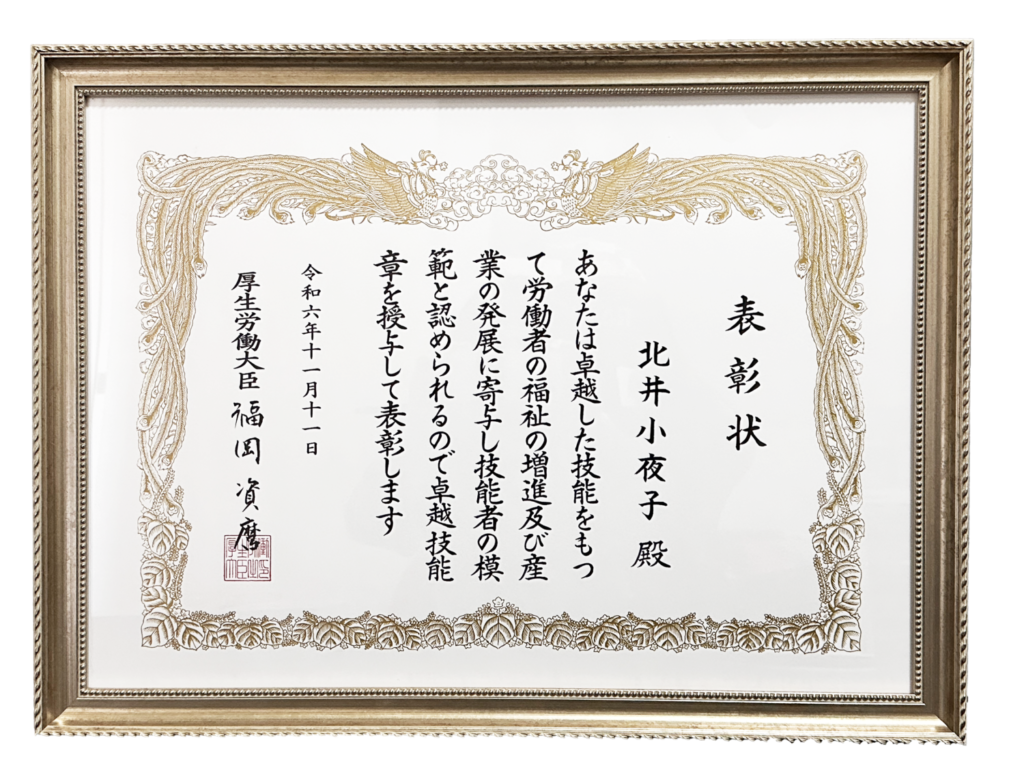 表彰状
北井小夜子 殿
あなたは卓越した技能をもつ
て労働者の福祉の増進及び産
業の発展に寄与し技能者の模
範と認められるので卓越技能
章を授与して表彰します
令和六年十一月十一日
厚生労働大臣 福岡 資麿